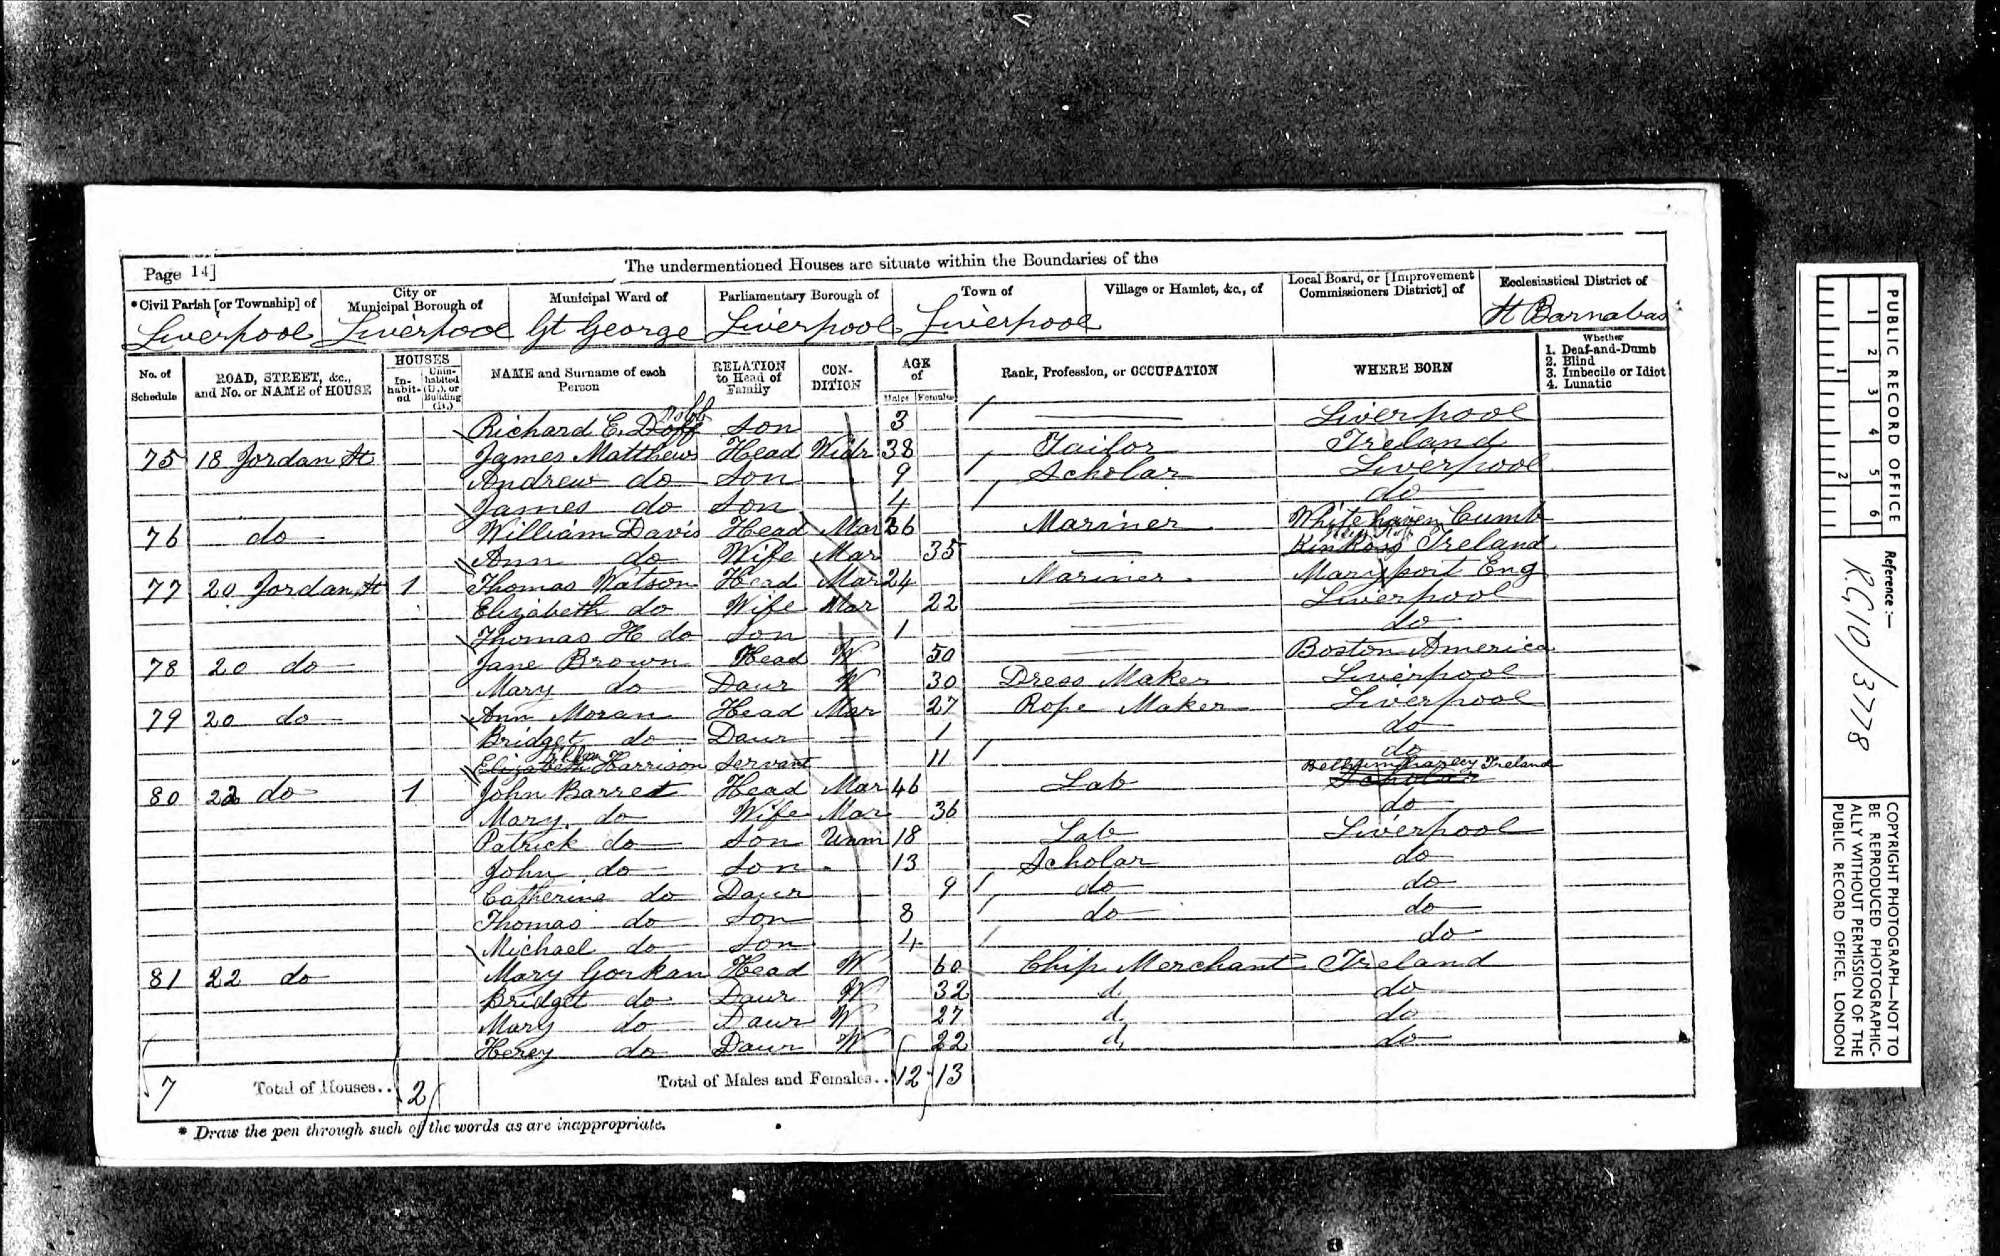 Page 14]
The undermentioned Houses are situate within the Boundaries of the
*Civil Parish [or Township] of
City or Municipal Borough of
Municipal Ward of
Parliamentary Borough of
Town of
Village or Hamlet, &c., of
Local Board, or [Improvement Commissioners District] of
Ecclesiastical District of
Liverpool Liverpool Gt George Liverpool Liverpool St Barnabas
No. of Schedule
ROAD, STREET, &c., and No. or NAME of HOUSE
HOUSES
In-habit-ed
Unin-habited (U.), or Building (B.)
NAME and Surname of each Person
RELATION to Head of Family
CON-DITION
AGE of
Males Females
Rank, Profession, or OCCUPATION
WHERE BORN
Whether
1. Deaf-and-Dumb
2. Blind
3. Imbecile or Idiot
4. Lunatic
Richard E. Son 3 Liverpool
75 18 Jordan St James Matthews Head Widr 38 Tailor Ireland
Andrew do Son 9 Scholar Liverpool
James do Son 4 do
76 do William Davis Head Mar 36 Mariner Whitehaven Cumb
Ann do Wife Mar 35 Ireland
77 20 Jordan St 1 Thomas Watson Head Mar 24 Mariner Maryport Eng
Elizabeth do Wife Mar 22 Liverpool
Thomas H do Son 1 do
78 20 do Jane Brown Head W 50 Boston America
Mary do Daur W 30 Dress Maker Liverpool
79 20 do Ann Moran Head Mar 27 Rope Maker Liverpool
Bridget do Daur 1 do
Elizabeth Harrison Servant 11 do
80 22 do 1 John Barret Head Mar 46 Lab Ireland Scholar
Mary do Wife Mar 36 do
Patrick do Son Unm 18 Lab Liverpool
John do Son 13 Scholar do
Catherine do Daur 9 do do
Thomas do Son 8 do do
Michael do Son 4 do
81 22 do Mary Gorkan Head W 60 Chip Merchant Ireland
Bridget do Daur W 32 d. do
Mary do Daur W 27 d. do
Herey do Daur W 22 d. do
7 Total of Houses.. 2 Total of Males and Females.. 12 13
* Draw the pen through such of the words as are inappropriate.
PUBLIC RECORD OFFICE
1 2 3 4 5 6
1 2
Reference:-
RG10/3778
COPYRIGHT PHOTOGRAPH—NOT TO
BE REPRODUCED PHOTOGRAPHIC-
ALLY WITHOUT PERMISSION OF THE
PUBLIC RECORD OFFICE, LONDON